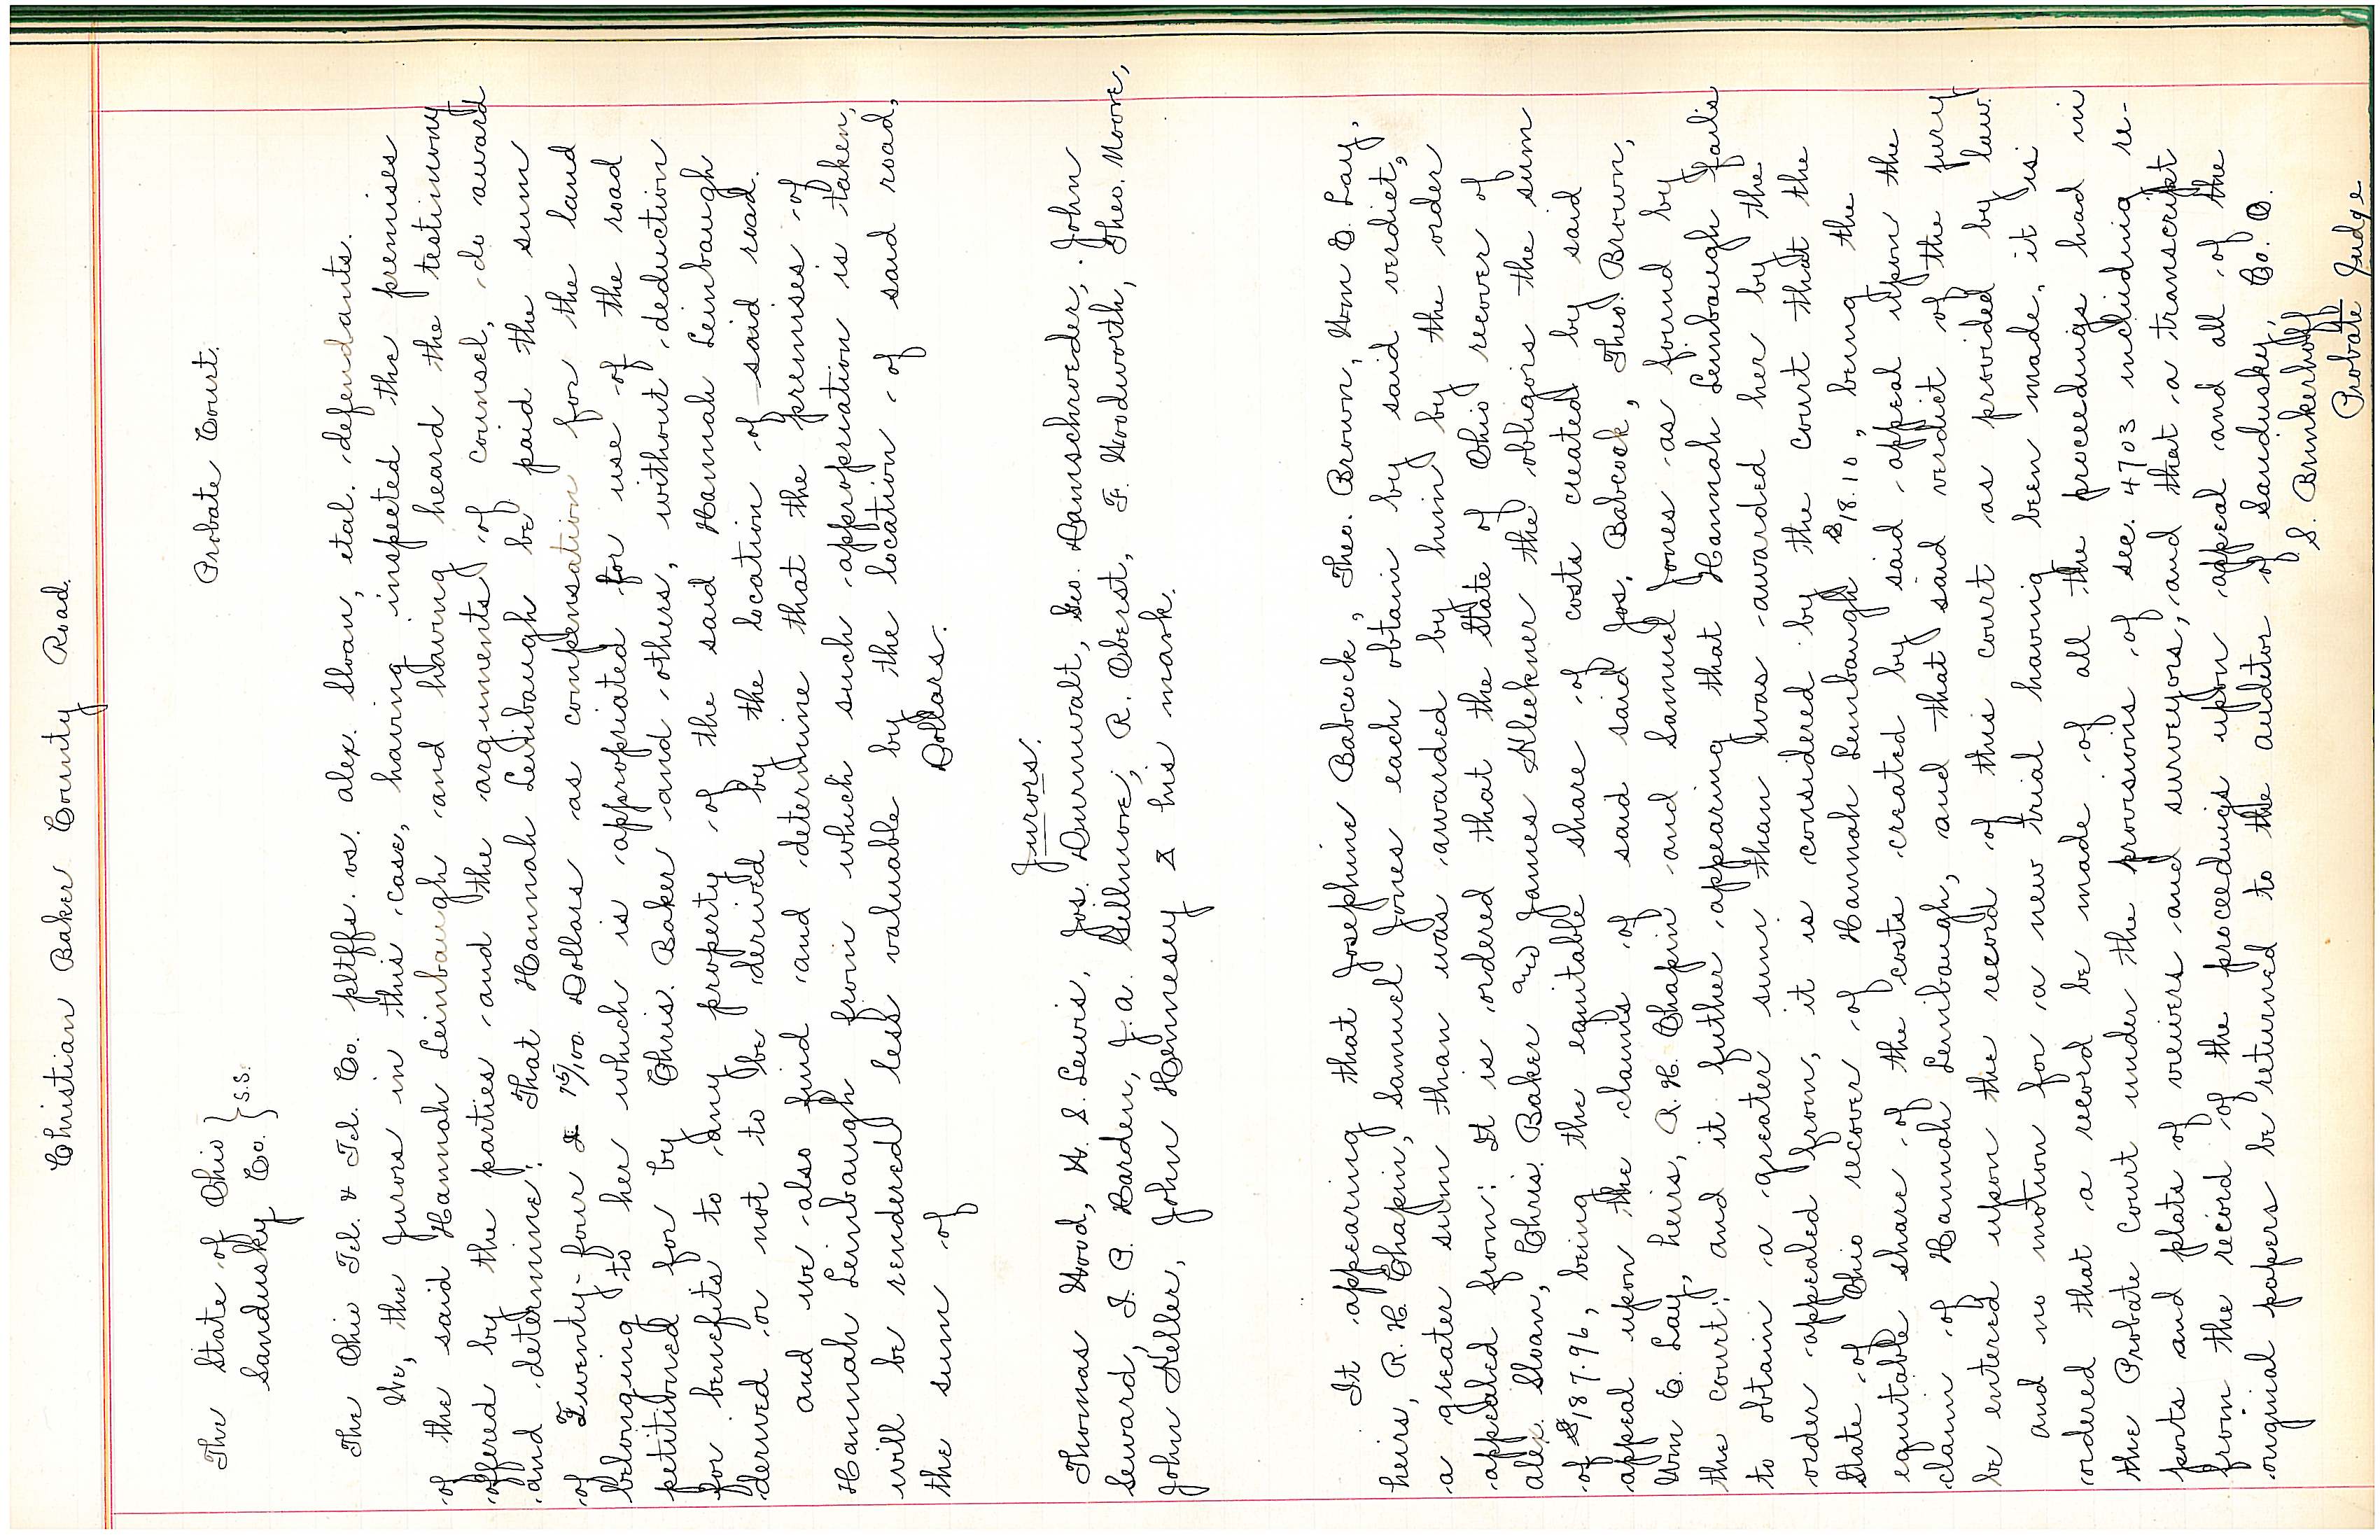 Christian Baker County Road.
The State of Ohio } S.S. Probate Court.
Sandusky Co. }
The Ohio Tel. & Tel. Co. pltffs. vs. Alex. Sloan, etal. defendants.
We, the jurors in this case, having inspected the premises
of the said Hannah Leinbaugh and having heard the testimony
offered by the parties and the arguments of counsel, do award
and determine: That Hannah Leinbaugh be paid the sum
of Twenty-four & 75/100 Dollars as compensation for the land
belonging to her which is appropriated for use of the road
petitioned for by Chris. Baker and others, without deduction
for benefits to any property of the said Hannah Leinbaugh
derived or not to be derived by the location of said road.
and we also find and determine that the premises of
Hannah Leinbaugh from which such appropriation is taken,
will be rendered less valuable by the location of said road,
the sum of Dollars.
Jurors.
Thomas Wood, W. S. Lewis, Jos. Durnwalt, Geo. Damschroder, John
Seward, I. B. Harden, J. A. Gillmore, R. Oberst, F. Woodworth, Theo. Moore,
John Keller, John Hennesey X his mark.
It appearing that Josephine Babcock, Theo. Brown, Wm E. Lay,
heirs, R. H. Chapin, Samuel Jones each obtain by said verdict,
a greater sum than was awarded by him by the order
appealed from: It is ordered that the State of Ohio recover of
Alex. Sloan, Chris. Baker and James Kleckner the obligors the sum
of $187.96, being the equitable share of costs created by said
appeal upon the claims of said said Jos. Babcock, Theo. Brown,
Wm E. Lay, heirs, R. H. Chapin and Samuel Jones as found by
the court; and it futher appearing that Hannah Leinbaugh fails
to obtain a greater sum than was awarded her by the
order appealed from, it is considered by the court that the
State of Ohio recover of Hannah Leinbaugh $18.10, being the
equitable share of the costs created by said appeal upon the
claim of Hannah Leinbaugh, and that said verdict of the jury
be entered upon the record of this court as provided by law.
and no motion for a new trial having been made, it is
ordered that a record be made of all the proceedings had in
the Probate Court under the provisions of sec. 4703 including re-
ports and plats of veiwers and surveyors, and that a transcript
from the record of the proceedings upon appeal and all of the
original papers be returned to the auditor of Sandusky, Co. O.
S. Brinkerhoff
Probate Judge